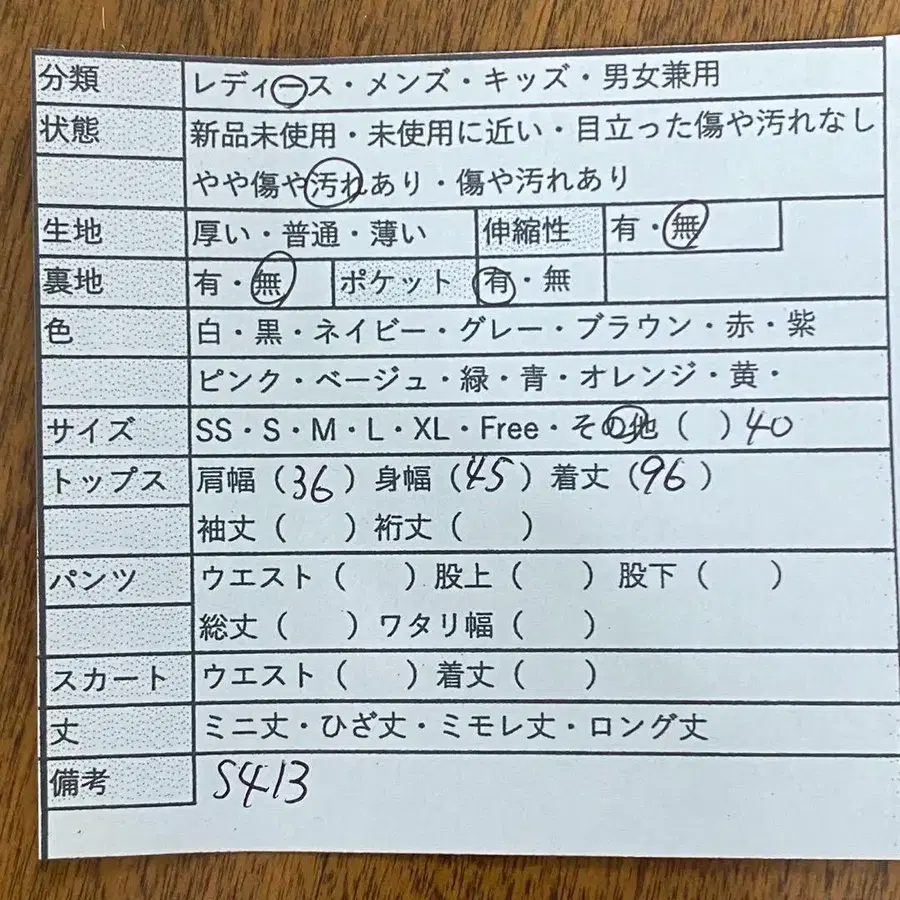 分類 レディース・メンズ・キッズ・男女兼用
状態 新品未使用・未使用に近い・目立った傷や汚れなし
やや傷や汚れあり・傷や汚れあり
生地 厚い・普通・薄い 伸縮性 有・無
裏地 有・無 ポケット 有・無
色 白・黒・ネイビー・グレー・ブラウン・赤・紫
ピンク・ベージュ・緑・青・オレンジ・黄・
サイズ SS・S・M・L・XL・Free・その他（ ）40
トップス 肩幅（36）身幅（45）着丈（96）
袖丈（ ）裄丈（ ）
パンツ ウエスト（ ）股上（ ）股下（ ）
総丈（ ）ワタリ幅（ ）
スカート ウエスト（ ）着丈（ ）
丈 ミニ丈・ひざ丈・ミモレ丈・ロング丈
備考 S413